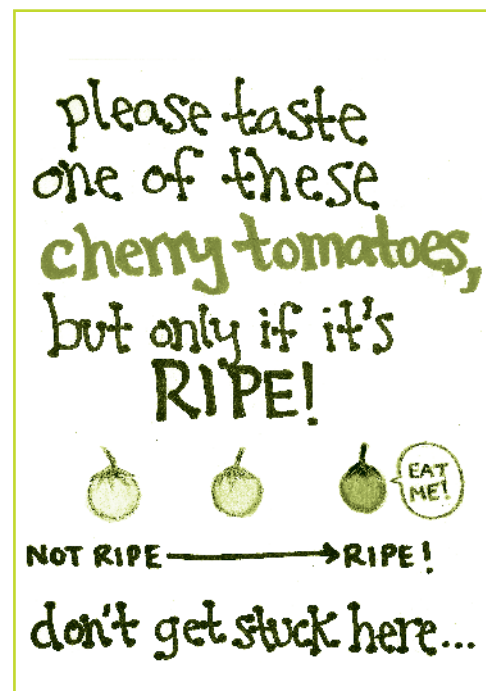 please taste
one of these
cherry tomatoes,
but only if it's
RIPE!
EAT
ME!
NOT RIPE → RIPE!
don't get stuck here...